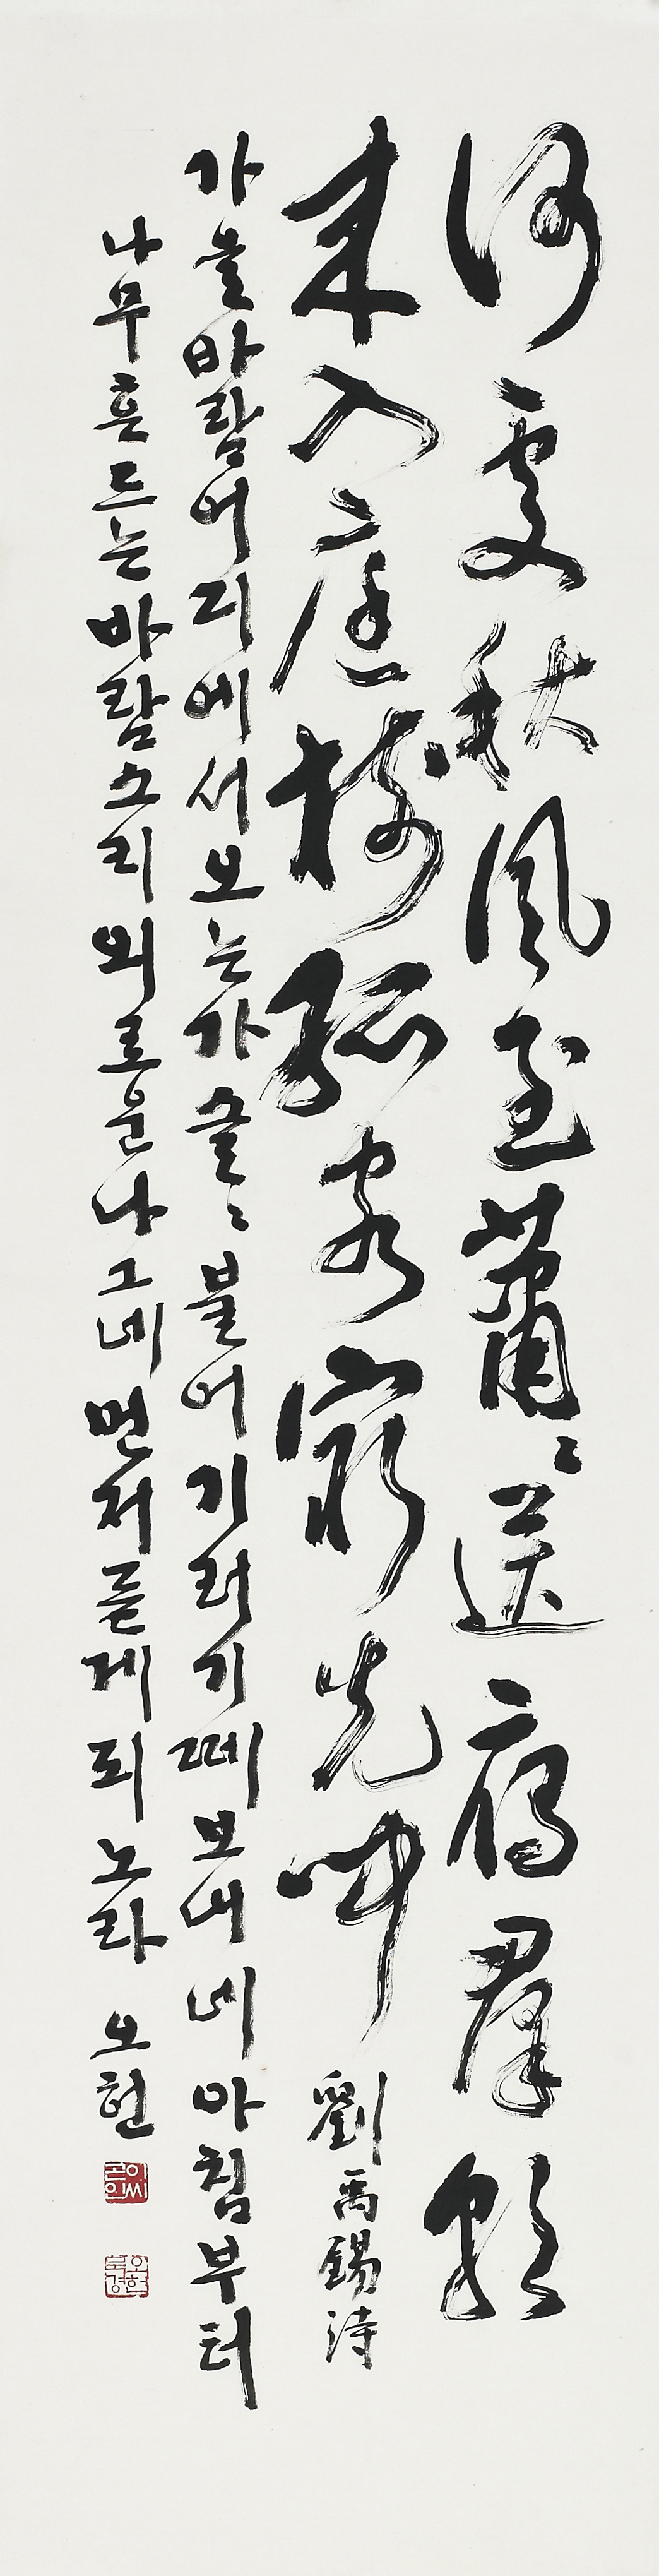 何處秋風至蕭〻送鴈羣朝
来入庭樹孤客最先聞 劉禹錫詩
가을바람어디에서오는가쓸〻불어기러기떼보내네아침부터
나무흔드는바람소리외로운나그네먼저듣게되노라 오헌